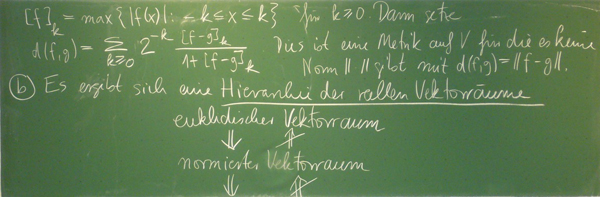 [f]_k = max{|f(x)| : -k ≤ x ≤ k} für k ≥ 0. Dann setze
d(f,g) = ∑_{k≥0} 2^{-k} [f-g]_k / (1+[f-g]_k) Dies ist eine Metrik auf V für die es keine
Norm ‖ ‖ gibt mit d(f,g) = ‖f-g‖.
(b) Es ergibt sich eine Hierarchie der reellen Vektorräume
euklidischer Vektorraum
⇓ ⇑̸
normierter Vektorraum
⇓ ⇑̸